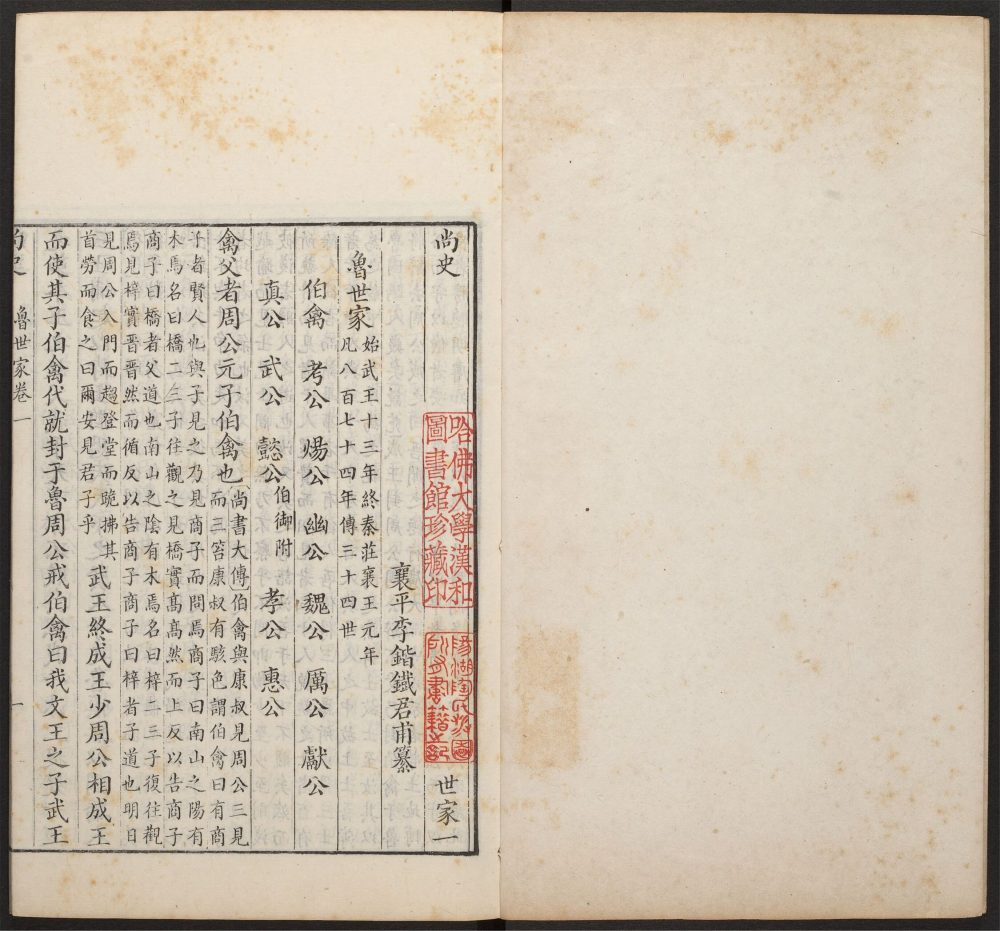 尚史 世家一
襄平李鍇鐵君甫纂
魯世家 始武王十三年終秦莊襄王元年
凡八百七十四年傳三十四世
伯禽 考公 煬公 幽公 魏公 厲公 獻公
真公 武公 懿公 伯御附 孝公 惠公
禽父者周公元子伯禽也 尚書大傳伯禽與康叔見周公三見
而三笞康叔有駭色謂伯禽曰有商
子者賢人也與子見之乃見商子而問焉商子曰南山之陽有
木焉名曰橋二三子往觀之見橋實高高然而上反以告商子
商子曰橋者父道也南山之陰有木焉名曰梓二三子復往觀
焉見梓實晉晉然而循反以告商子商子曰梓者子道也明日
見周公入門而趨登堂而跪拂其
首勞而食之曰爾安見君子乎 武王終成王少周公相成王
而使其子伯禽代就封于魯周公戒伯禽曰我文王之子武王
尚史 魯世家卷一 一
哈佛大學漢和
圖書館珍藏印